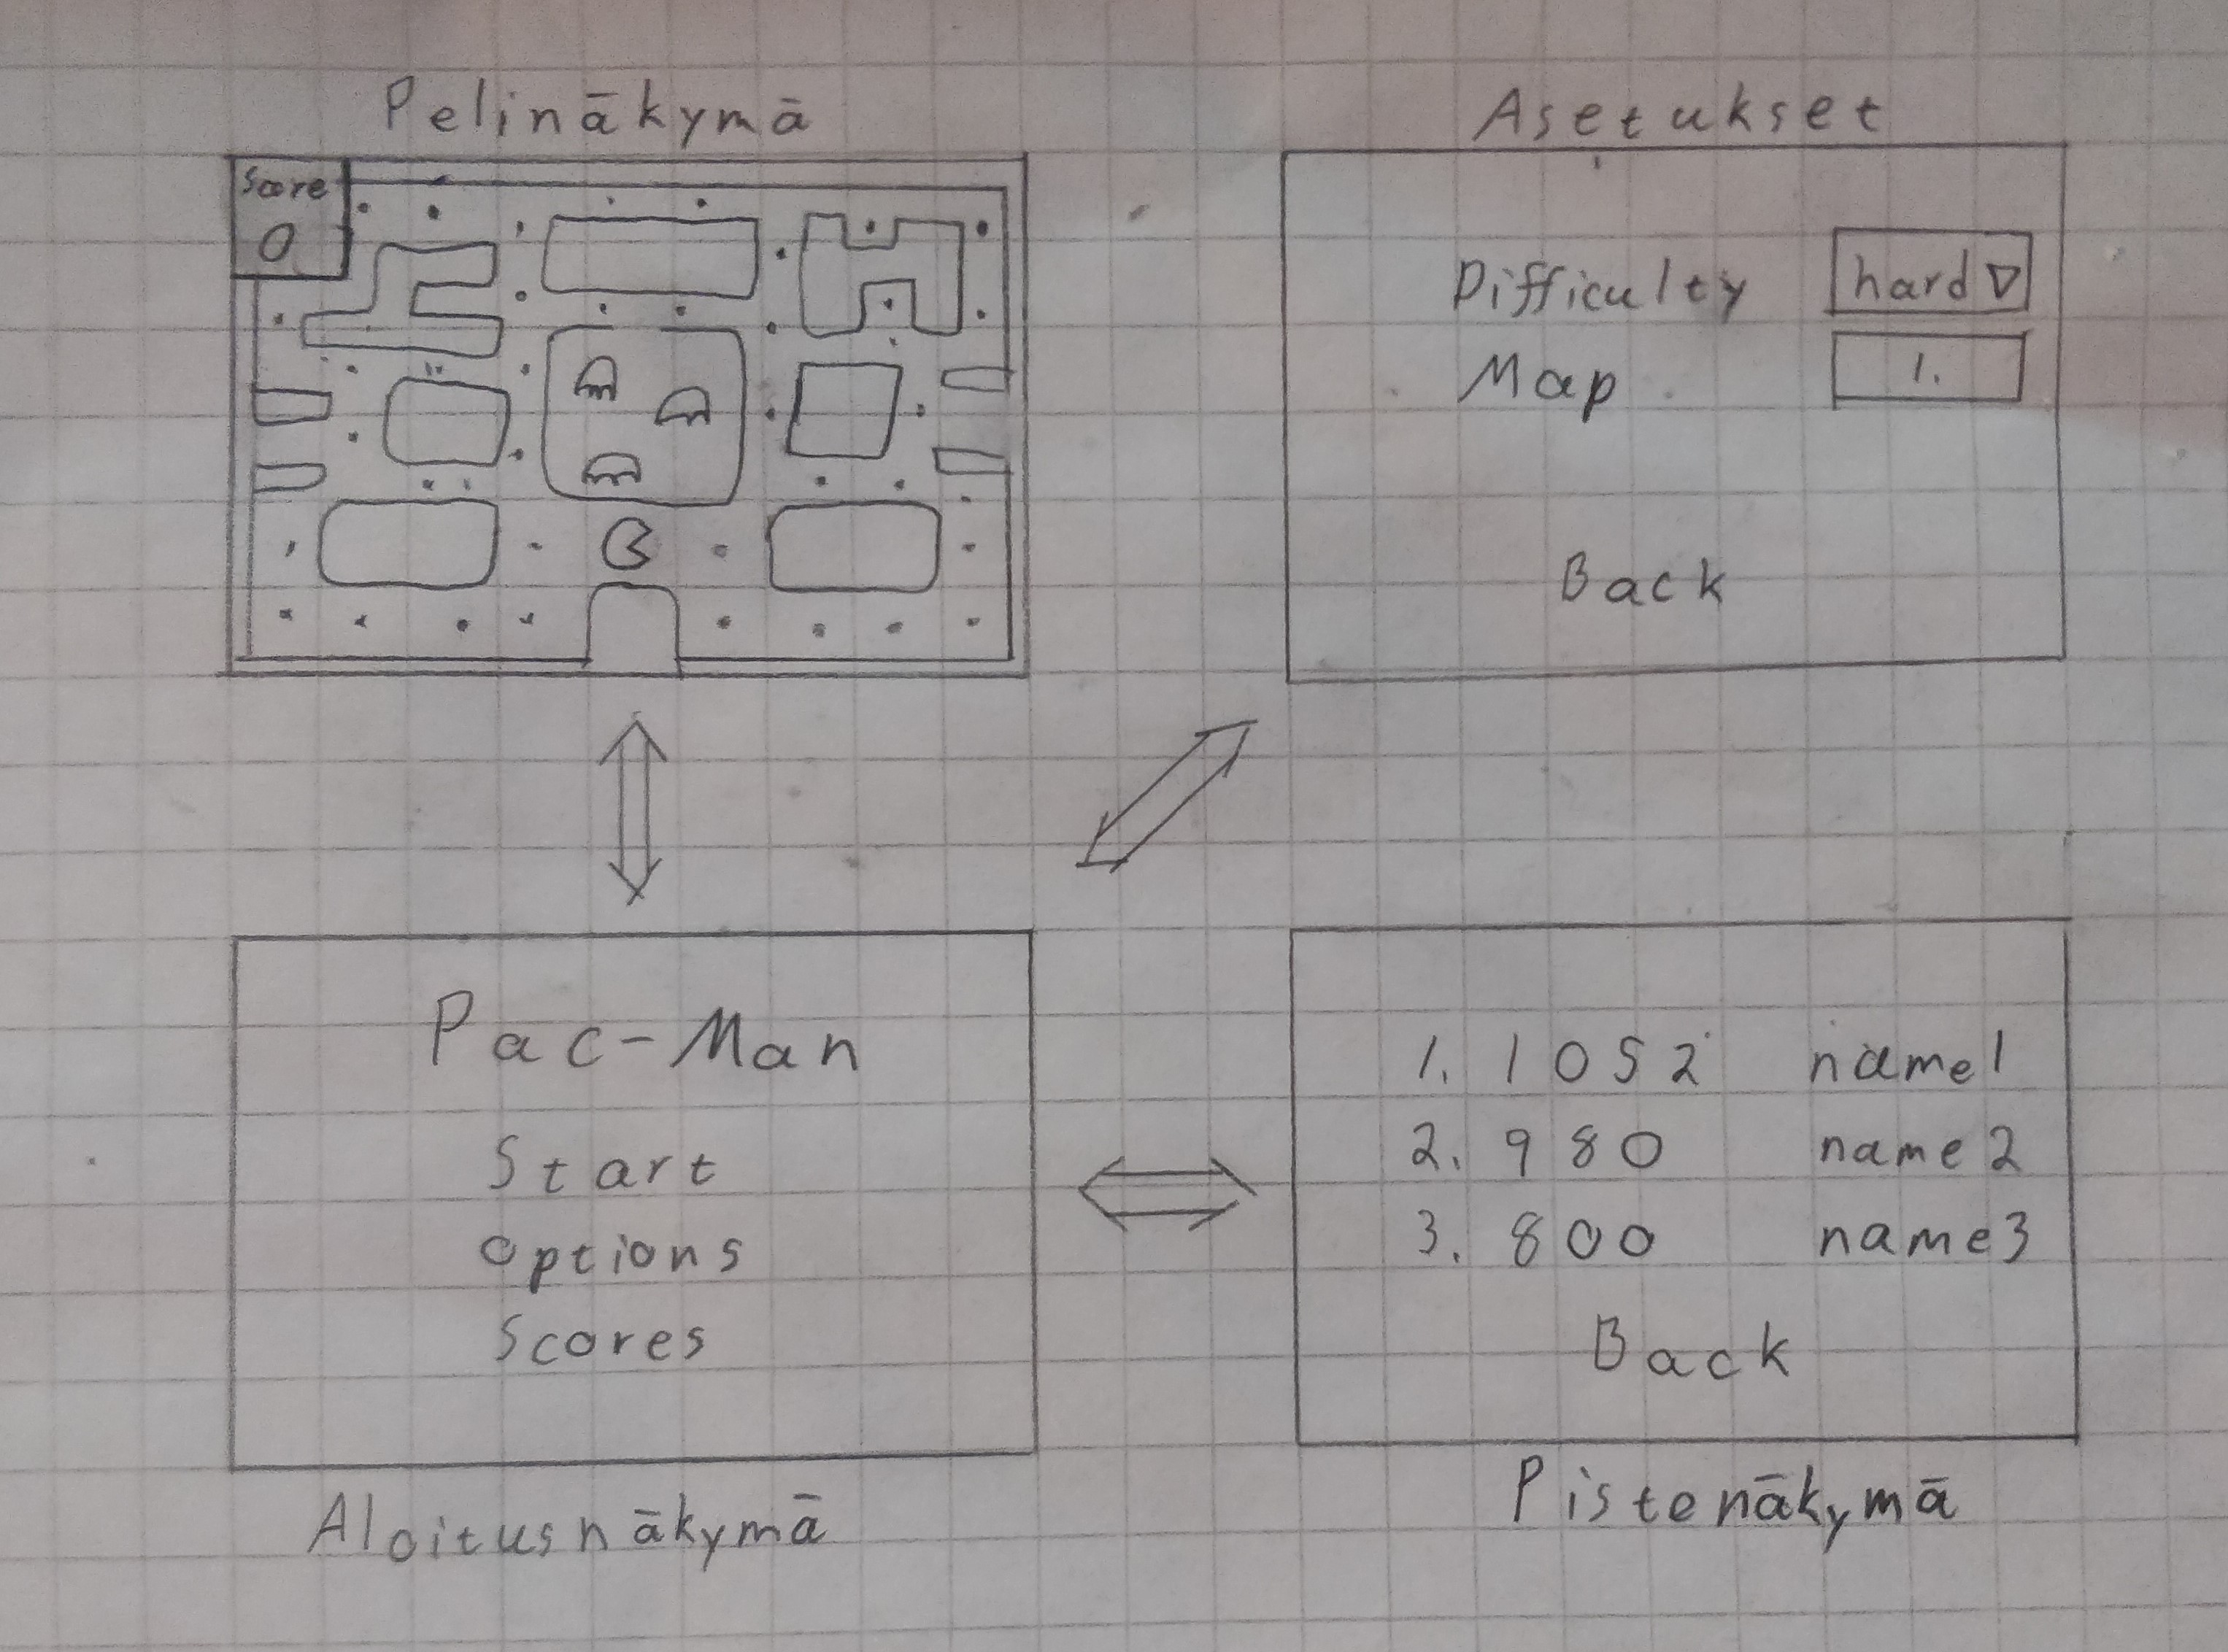 Pelinäkymä
Score
0
Asetukset
Difficulty hard
Map 1.
Back
Pac-Man
Start
Options
Scores
Aloitusnäkymä
1. 1052 name1
2. 980 name2
3. 800 name3
Back
Pistenäkymä